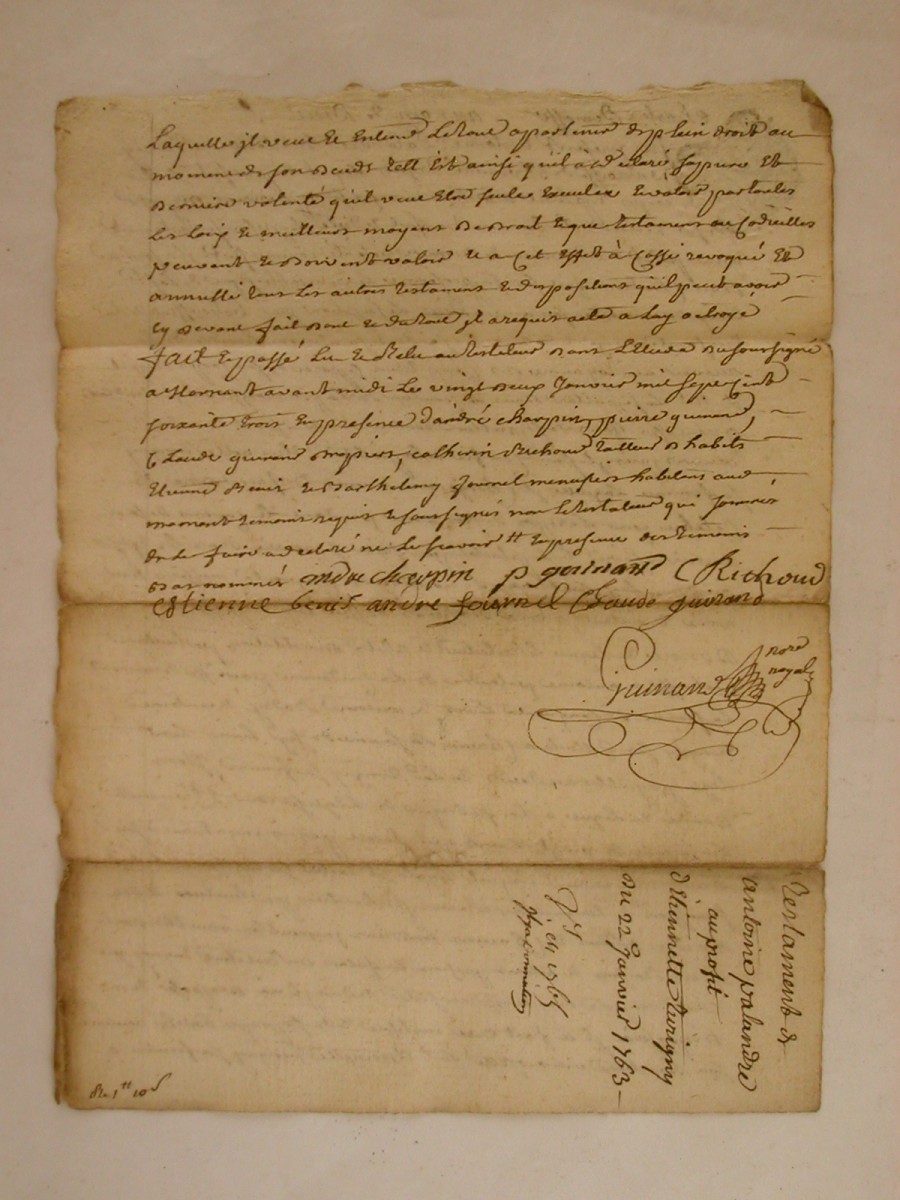 Laquelle il veut et entend le tout apartenir de plein droit au
moment de son deceds telle est ainsi qu'il a declaré sa pure et
derniere volonté qu'il veut etre seule executée et valoir par toutes
les loix et meilleurs moyens de droit et que testament ou codicilles
peuvent et doivent valoir et a cet effet à cassé revoqué et
annullé tous les autres testament et dispositions qu'il peut avoir
cy devant fait dont et du tout il a requis acte a luy octroyé
fait et passé lu et relu au testateur dans l'etude du soussigné
a Mornant avant midi le vingt deux janvier mil sept cent
soixante trois en presence d'andré charpin, pierre guinand,
Claude guinand drapiers, catherin Richoud tailleur d'habits
Etienne Benit et Barthelemy fournel menusiers habitans aud.
mornant temoins requis et soussignés non le testateur qui sommé
de le faire a declaré ne le scavoir en presence des temoins
sus nommés andre charpin p guinand C Richoud
estienne benit andre fournel Claude guinand
Guinand nore
royal
testament de
antoine valandre
au profit
d'Ethiennette turigny
du 22 janvier 1763
1763